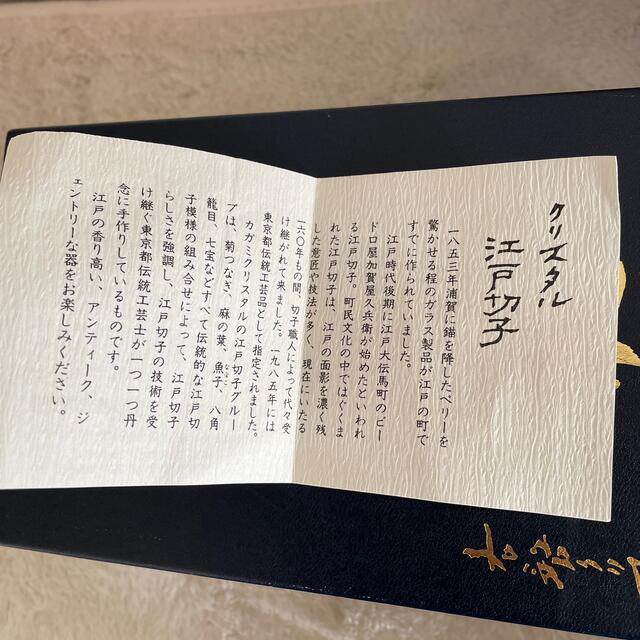 クリスタル
江戸切子
一八五三年浦賀に錨を降したペリーを
驚かせる程のガラス製品が江戸の町で
すでに作られていました。
江戸時代後期に江戸大伝馬町のビー
ドロ屋加賀屋久兵衛が始めたといわれ
る江戸切子。町民文化の中ではぐくま
れた江戸切子は、江戸の面影を濃く残
した意匠や技法が多く、現在にいたる
一六〇年もの間、切子職人によって代々受
け継がれて来ました。一九八五年には
東京都伝統工芸品として指定されました。
カガミクリスタルの江戸切子グルー
プは、菊つなぎ、麻の葉、魚子、八角
籠目、七宝などすべて伝統的な江戸切
子模様の組み合せによって、江戸切子
らしさを強調し、江戸切子の技術を受
け継ぐ東京都伝統工芸士が一つ一つ丹
念に手作りしているものです。
江戸の香り高い、アンティーク、ジ
ェントリーな器をお楽しみください。